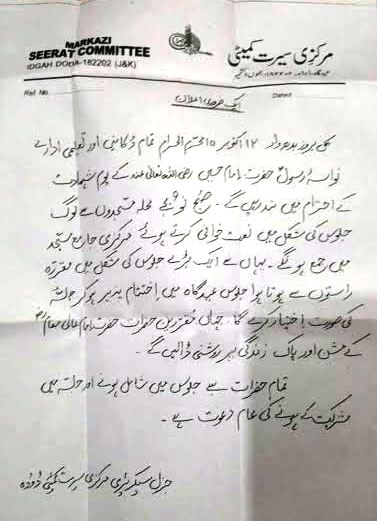 MARKAZI
SEERAT COMMITTEE
IDGAH: DODA-182202 (J&K)
مرکزی سیرت کمیٹی
Ref. No
Dated
ایک ضروری اعلان
کل بروز بدھ وار ۱۲ اکتوبر ۱۰ محرم الحرام تمام دکانیں اور تعلیمی ادارے
نواسہ رسول حضرت امام حسین رضی اللہ تعالیٰ عنہ کے یوم شہادت
کے احترام میں بند رہیں گے۔ صبح نو بجے محلہ مسجدوں سے لوگ
جلوس کی شکل میں نعت خوانی کرتے ہوئے مرکزی جامع مسجد
میں جمع ہونگے۔ یہاں سے ایک بڑے جلوس کی شکل میں مقررہ
راستوں سے ہوتا ہوا جلوس عیدگاہ میں اختتام پذیر ہوکر جلسہ
کی صورت اختیار کرے گا۔ جہاں مقررین حضرات حضرت امام عالی مقام
کے مشن اور پاک زندگی پر روشنی ڈالیں گے۔
تمام حضرات سے جلوس میں شامل ہونے اور جلسہ میں
شرکت کے ہونے کی عام دعوت ہے۔
جنرل سیکریٹری مرکزی سیرت کمیٹی ڈوڈہ